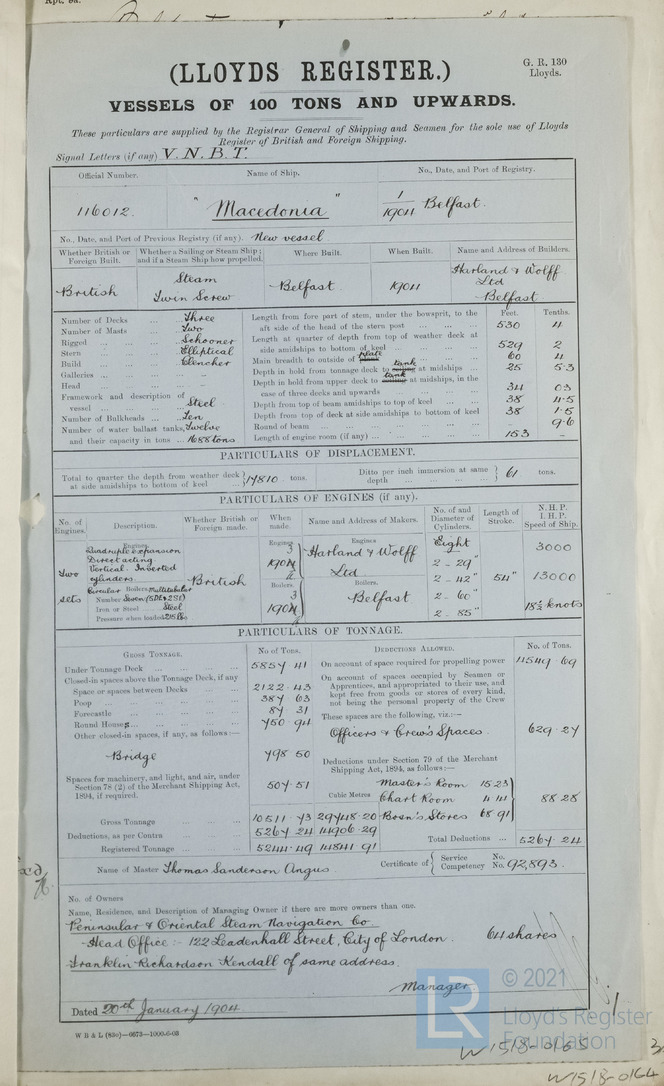 (LLOYDS REGISTER.)
G. R. 130
Lloyds.
VESSELS OF 100 TONS AND UPWARDS.
These particulars are supplied by the Registrar General of Shipping and Seamen for the sole use of Lloyds
Register of British and Foreign Shipping.
Signal Letters (if any) V. N. B. T.
Official Number. Name of Ship. No., Date, and Port of Registry.
116012. "Macedonia" 1/1904 Belfast.
No., Date, and Port of Previous Registry (if any). New vessel
Whether British or Foreign Built. Whether a Sailing or Steam Ship; and if a Steam Ship how propelled. Where Built. When Built. Name and Address of Builders.
British Steam Twin Screw Belfast 1904 Harland & Wolff Ltd Belfast
Feet. Tenths.
Number of Decks ... Three
Number of Masts ... Two
Rigged ... Schooner
Stern ... Elliptical
Build ... Clencher
Galleries ... -
Head ... -
Framework and description of vessel ... Steel
Number of Bulkheads ... Ten
Number of water ballast tanks, Twelve
and their capacity in tons ... 1688 tons
Length from fore part of stem, under the bowsprit, to the
aft side of the head of the stern post ... 530 4
Length at quarter of depth from top of weather deck at
side amidships to bottom of keel ... 529 2
Main breadth to outside of plate ... 60 4
Depth in hold from tonnage deck to tank at midships ... 25 5·3
Depth in hold from upper deck to tank at midships, in the
case of three decks and upwards ... 34 03
Depth from top of beam amidships to top of keel ... 38 4·5
Depth from top of deck at side amidships to bottom of keel 38 1·5
Round of beam ... 9·6
Length of engine room (if any) ... 153 -
PARTICULARS OF DISPLACEMENT.
Total to quarter the depth from weather deck at side amidships to bottom of keel ... 17810 tons. Ditto per inch immersion at same depth ... 61 tons.
PARTICULARS OF ENGINES (if any).
No. of Engines. Description. Whether British or Foreign made. When made. Name and Address of Makers. No. of and Diameter of Cylinders. Length of Stroke. N.H.P. I.H.P. Speed of Ship.
Two sets
Engines.
Quadruple expansion
Direct acting
Vertical. Inverted
cylinders.
Circular Boilers multitubular
Number Seven (5DE & 2SE)
Iron or Steel Steel
Pressure when loaded 215 lbs
British
Engines
1904
Boilers.
1904
Engines
Harland & Wolff
Ltd
Boilers.
Belfast
Eight
2 - 29"
2 - 42"
2 - 60"
2 - 85"
54"
3000
13000
18½ knots
PARTICULARS OF TONNAGE.
GROSS TONNAGE. No of Tons.
Under Tonnage Deck ... 5857 41
Closed-in spaces above the Tonnage Deck, if any
Space or spaces between Decks ... 2122 43
Poop ... 387 63
Forecastle ... 87 31
Round Houses ... 750 94
Other closed-in spaces, if any, as follows:—
Bridge 798 50
Spaces for machinery, and light, and air, under
Section 78 (2) of the Merchant Shipping Act,
1894, if required. 507·51
Gross Tonnage 10511 73 29748·20
Deductions, as per Contra 5267 24 14906·29
Registered Tonnage 5244 49 14841 91
Cubic Metres
DEDUCTIONS ALLOWED. No. of Tons.
On account of space required for propelling power 4549 69
On account of spaces occupied by Seamen or
Apprentices, and appropriated to their use, and
kept free from goods or stores of every kind,
not being the personal property of the Crew
These spaces are the following, viz.:—
Officers & Crew's Spaces. 629·27
Deductions under Section 79 of the Merchant
Shipping Act, 1894, as follows:—
Master's Room 15 23
Chart Room 4 14
Bosn's Stores 68 91
88 28
Total Deductions ... 5267·24
Name of Master Thomas Sanderson Angus. Certificate of Service No. Competency No. 92,893.
No. of Owners
Name, Residence, and Description of Managing Owner if there are more owners than one.
Peninsular & Oriental Steam Navigation Co
Head Office :- 122 Leadenhall Street, City of London. 64 shares
Franklin Richardson Kendall of same address
Manager
Dated 20th January 1904.
W B & L (83o)—6673—1000-6-03
LR © 2021
Lloyd's Register
Foundation
W1518-0165
W1518-0164